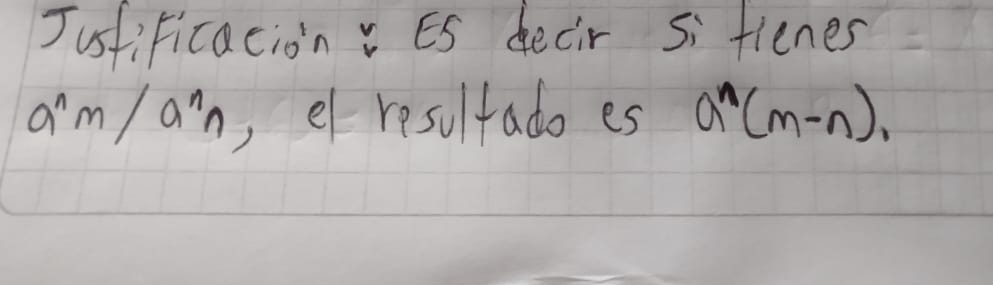 Justificación: Es decir si tienes =
aⁿm/aⁿn, el resultado es aⁿ(m-n).